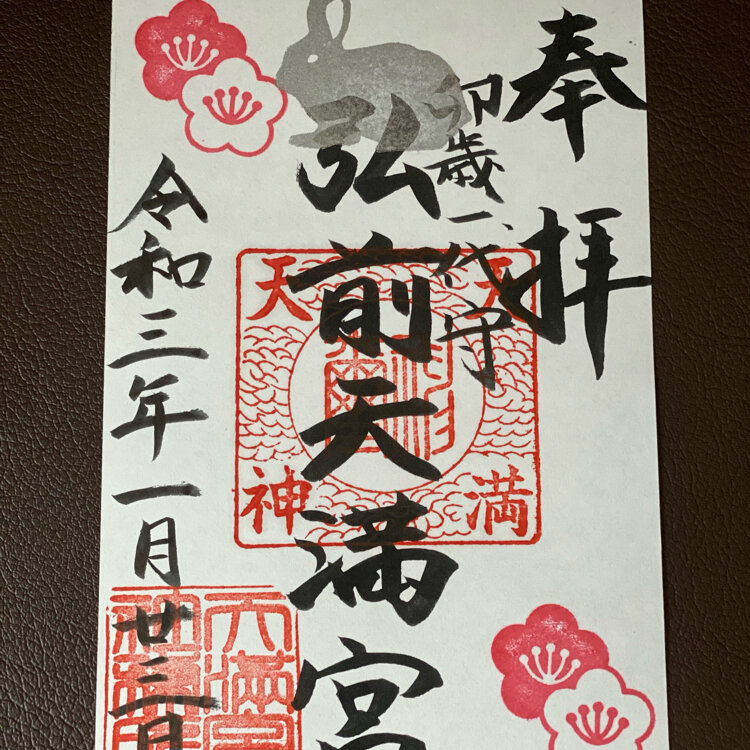 奉拝
卯歳一代守
弘前天満宮
天満
天神
令和三年一月廿三日